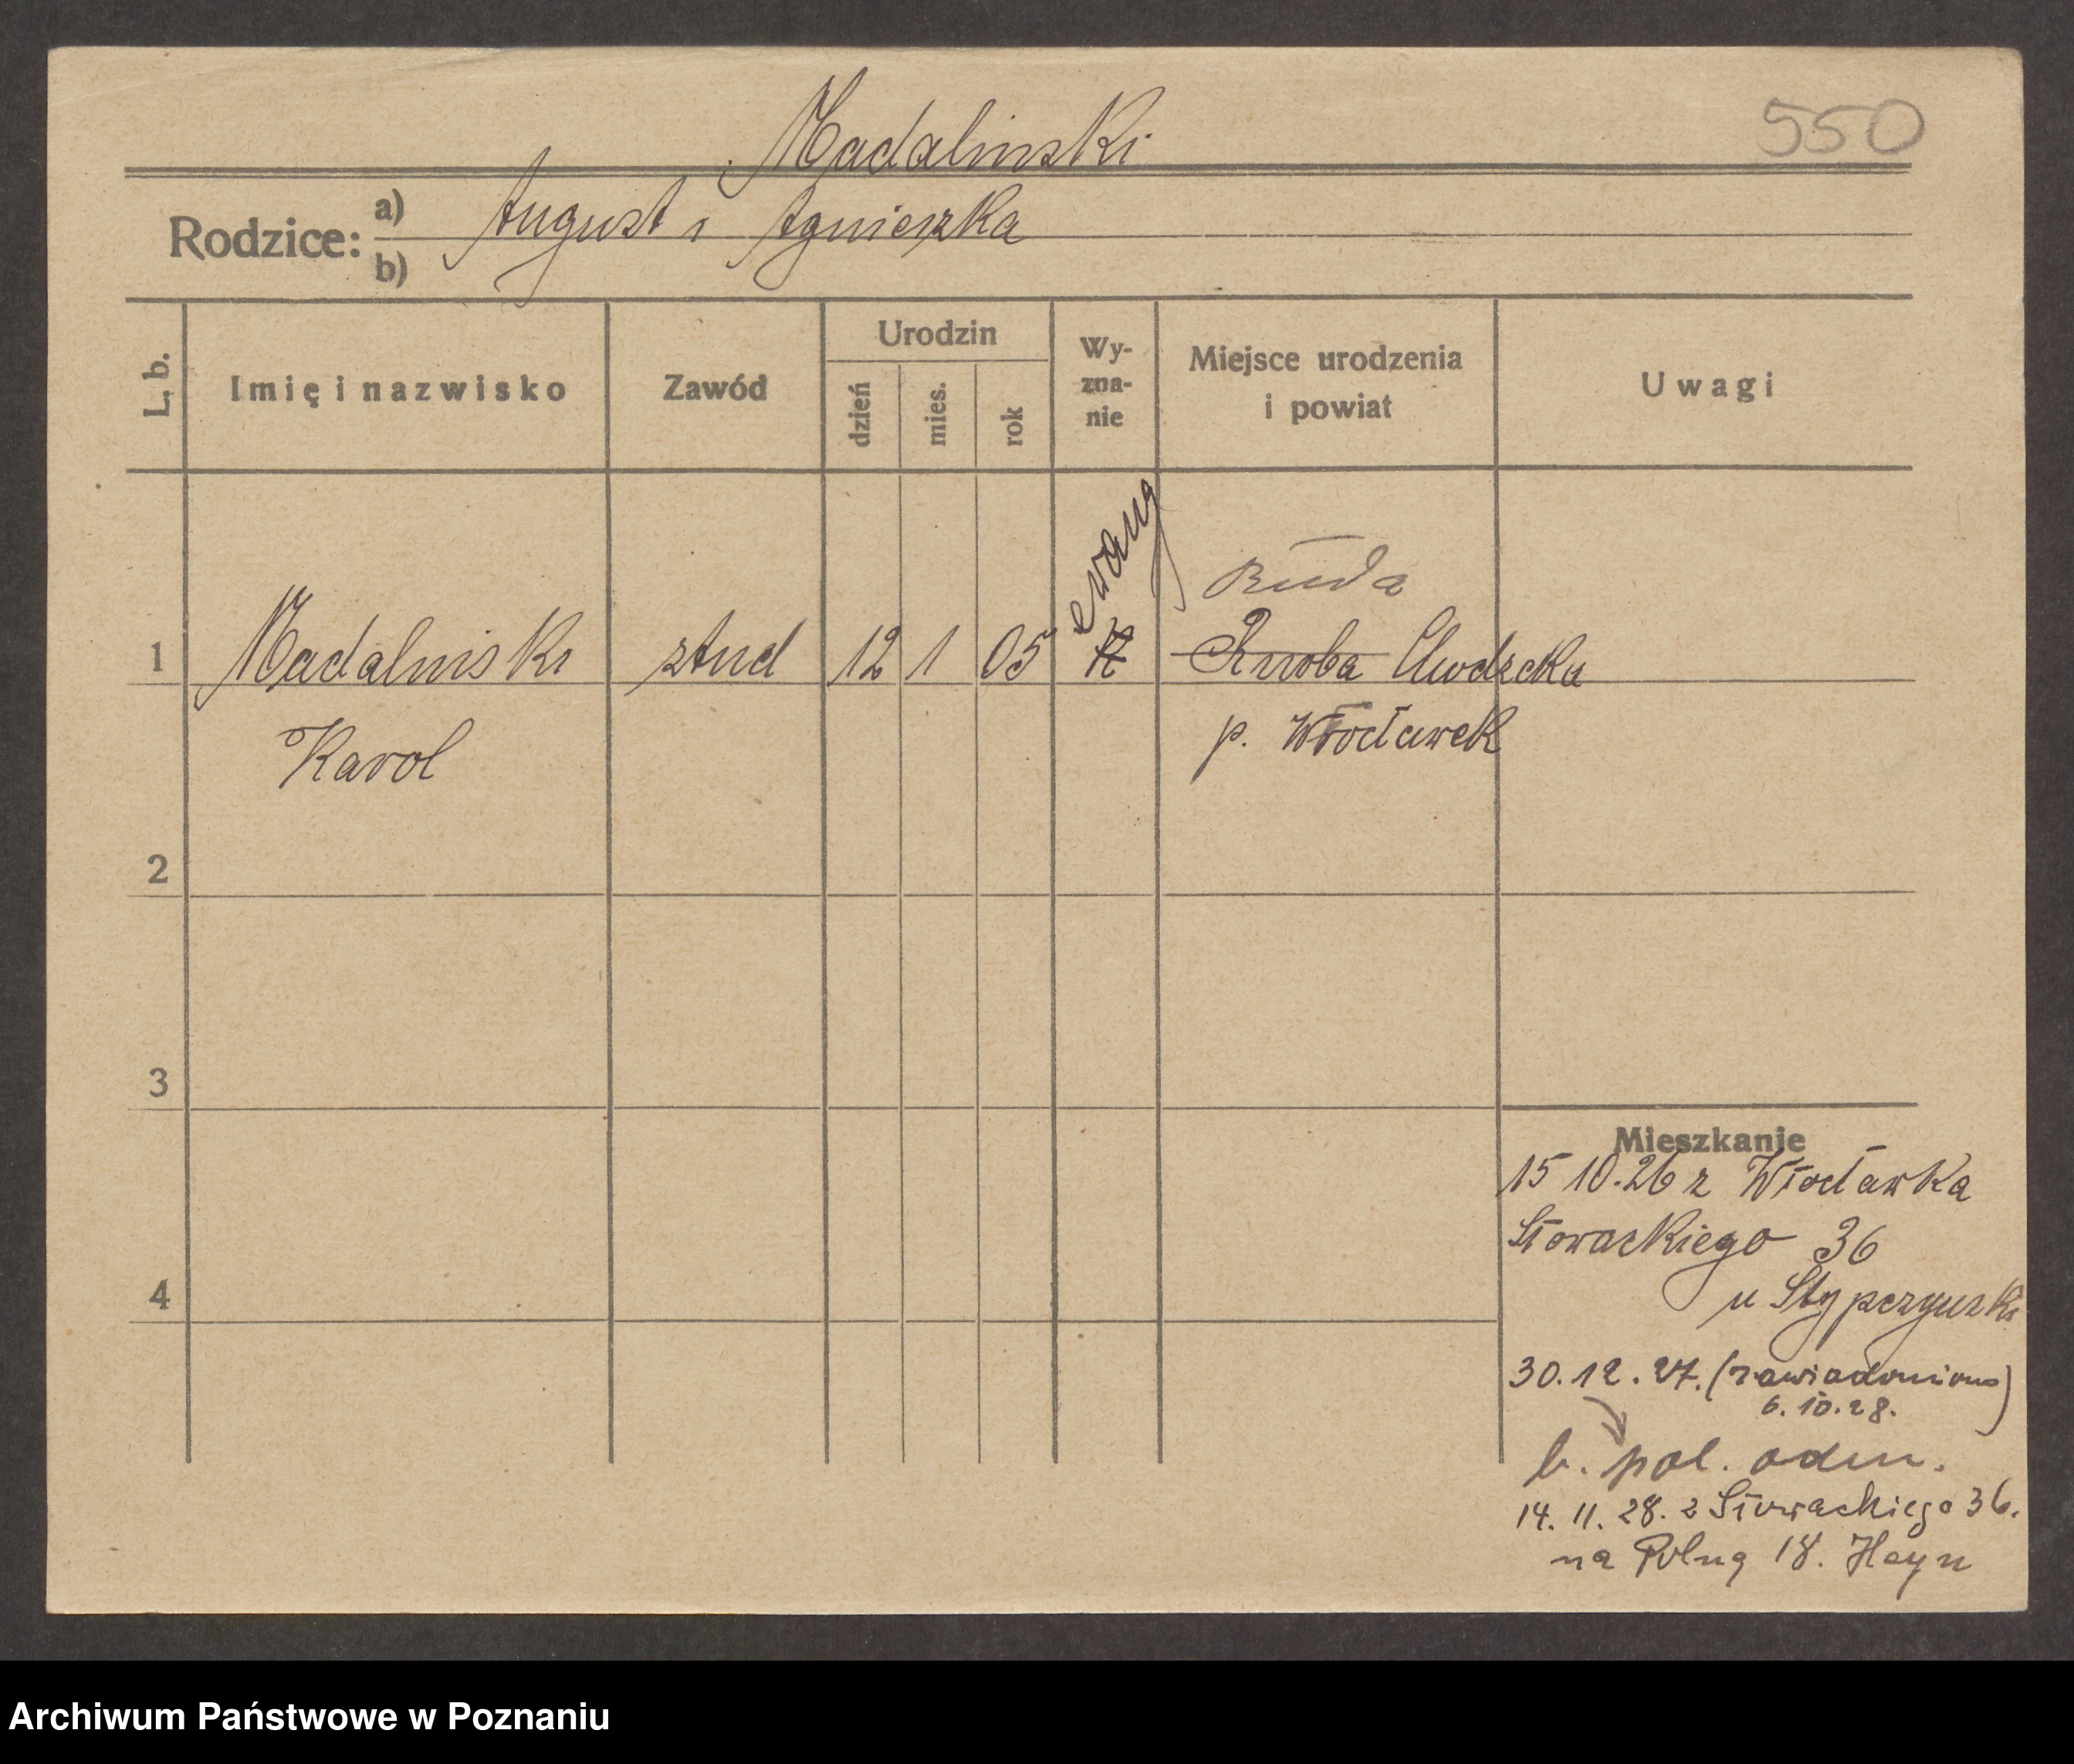 Madalinski
550
Rodzice: a) August i Agnieszka
b)
L. b.
Imię i nazwisko
Zawód
Urodzin
dzień
mies.
rok
Wy-
zna-
nie
Miejsce urodzenia
i powiat
Uwagi
ewang
Ruda
1 Madalinski stud 12 1 05 K
Karol
p. Włocławek
2
3
4
Mieszkanie
15 10.26 z Włocławka
Słowackiego 36
u Stypczynski
30.12.27. (zawiadomiono
6.10.28.)
b. pol. odm.
14. 11. 28. z Słowackiego 36.
na Polną 18. Heyn
Archiwum Państwowe w Poznaniu